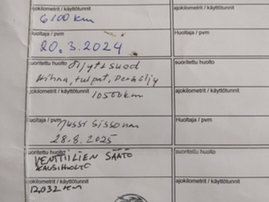 ajokilometrit / käyttötunnit
6100 km
ajokilometrit / käyttötunnit
Huoltaja / pvm
20.3.2024
Huoltaja / pvm
suoritettu huolto
Öljyt+suod
hihna, tulpat, Peräöljy
suoritettu huolto
ajokilometrit / käyttötunnit
10500km
ajokilometrit / käyttötunnit
Huoltaja / pvm
Jussi Sissonen
28.8.2025
Huoltaja / pvm
VENTTIILIEN SÄÄTÖ
KAUSIHUOLTO
suoritettu huolto
ajokilometrit / käyttötunnit
12,032 km
ajokilometrit / käyttötunnit